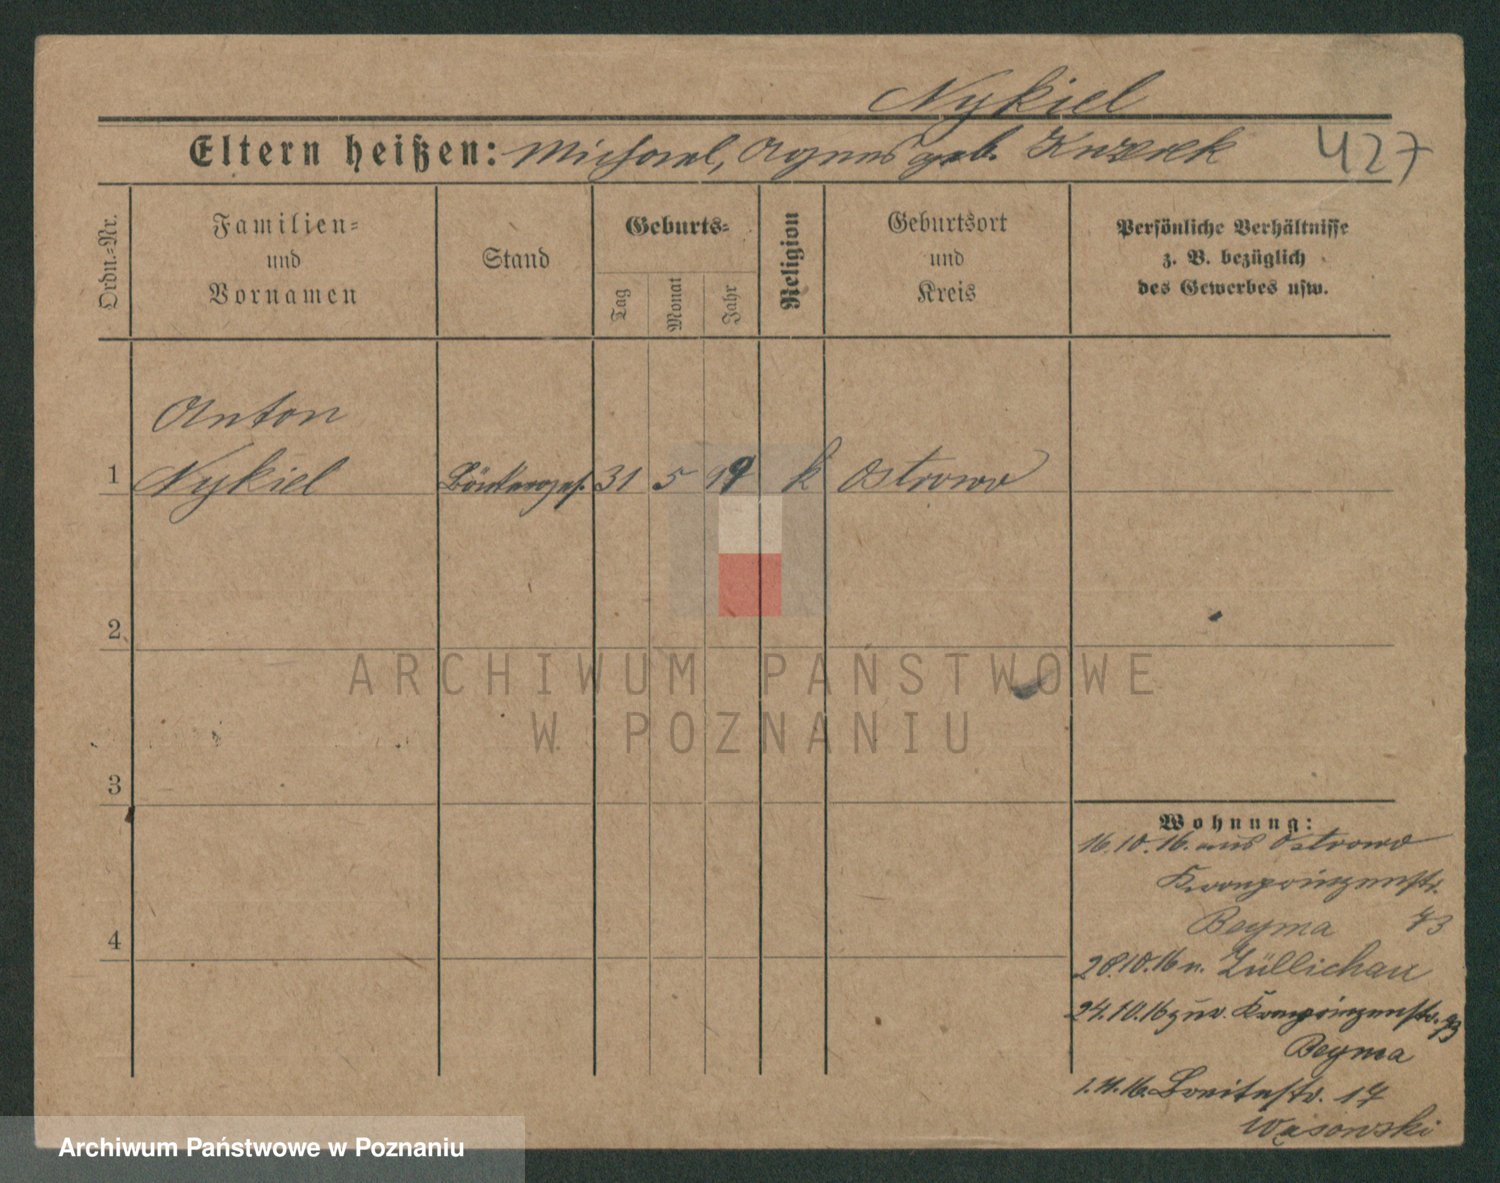 Nykiel
Eltern heißen: Michael, Agnes geb.
427
Ordn.-Nr.
Familien-
und
Vornamen
Stand
Geburts-
Tag
Monat
Jahr
Religion
Geburtsort
und
Kreis
Persönliche Verhältnisse
z. B. bezüglich
des Gewerbes usw.
Anton
1 Nykiel 31 5 k Ostrowo
2
3
4
ARCHIWUM PAŃSTWOWE
W POZNANIU
Wohnung:
16.10.16. aus Ostrowo
Kronprinzenstr.
Beyma 73
28.10.16 n. Züllichau
24.10.16 zur. Kronprinzenstr. 93
Beyma
Breitestr. 17
Wąsowski
Archiwum Państwowe w Poznaniu